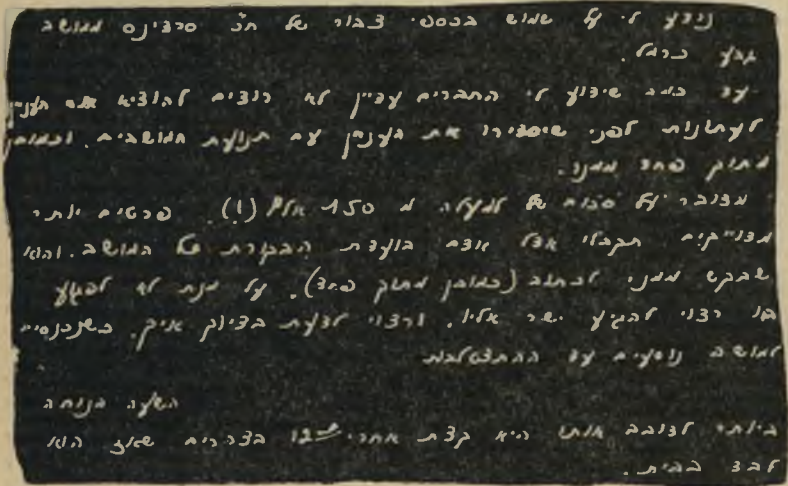 נודע לי על שמוש בכספי צבור של ח"כ סרדינס ממושב
גבע כרמל.
עד כמה שידוע לי החברים עדיין לא רוצים להוציא את הענין
לעתונות לפני שיסדירו את הענין עם תנועת המושבים. וכמובן
מתוך פחד ממנו.
מדובר על סכום של למעלה מ 150 אלף (!). פרטים יותר
מדוייקים תקבלי אצל אדם בועדת הבקורת של המושב. והוא
שבקש ממני לכתוב (כמובן מתוך פחד). על מנת לא לפגוע
בו רצוי להגיע ישר אליו. ורצוי לדעת בדיוק איך. כשנכנסים
למושב נוסעים עד ההתפצלות
השעה הנוחה
ביותר לדובב אותו היא קצת אחרי 12 בצהרים שאז הוא
לבד בבית.